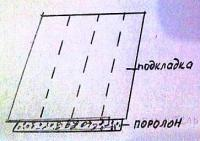 подкладка
поролон